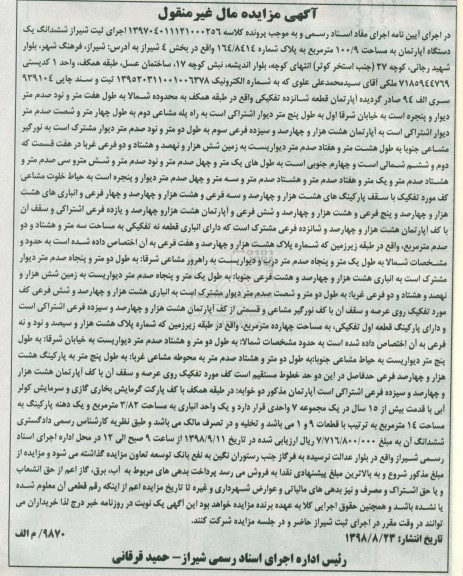 آگهی مزایده مال غیرمنقول
در اجرای آیین نامه اجرای مفاد اسناد رسمی و به موجب پرونده کلاسه ۱۳۹۷۰۴۰۱۱۱۲۱۰۰۰۲۵۶ اجرای ثبت شیراز ششدانگ یک
دستگاه آپارتمان به مساحت ۱۰۰/۹ مترمربع به پلاک شماره ۱۶۴/۸۴۱۴ واقع در بخش ۴ شیراز به آدرس: شیراز، فرهنگ شهر، بلوار
شهید رجائی، کوچه ۲۷ (جنب استخر کوثر) انتهای کوچه، بلوار اندیشه، نبش کوچه ۱۷، ساختمان عسل، طبقه همکف، واحد ۱ کدپستی
۷۱۸۵۹۴۴۷۶۹ ملکی آقای سیدمحمدعلی علوی که به شماره الکترونیک ۱۳۹۵۲۰۳۱۱۰۰۱۰۰۶۳۷۸ ثبت و سند چاپی ۹۳۹۱۰۴
سری الف ۹۴ صادر گردیده آپارتمان قطعه شانزده تفکیکی واقع در طبقه همکف به محدوده شمالا به طول هفت متر و نود صدم متر
دیوار و پنجره است به خیابان شرقا اول به طول پنج متر دیوار اشتراکی است به راه پله مشاعی دوم به طول چهار متر و شصت صدم متر
دیوار اشتراکی است به آپارتمان هشت هزار و چهارصد و سیزده فرعی سوم به طول دو متر و نود صدم متر دیوار مشترک است به نورگیر
مشاعی جنوبا به طول هشت متر و هفتاد صدم متر دیواریست به زمین شش هزار و نهصد و هشتاد و دو فرعی غربا در هفت قسمت که
دوم و ششم شمالی است و چهارم جنوبی است به طول های یک متر و چهل صدم متر و نود صدم متر و شش مترو سی صدم متر و
هشتاد صدم متر و یک متر و هفتاد صدم متر و هشتاد صدم متر و سه متر و چهل صدم متر دیوار و پنجره است به حیاط خلوت مشاعی
کف مورد تفکیک با سقف پارکینگ های هشت هزار و چهارصد و سه فرعی و هشت هزار و چهارصد و چهار فرعی و انباری های هشت
هزار و چهارصد و پنج فرعی و هشت هزار و چهارصد و شش فرعی و آپارتمان هشت هزارو چهارصد و یازده فرعی اشتراکی و سقف آن
با کف آپارتمان هشت هزار و چهارصد و شانزده فرعی مشترک است که دارای انباری قطعه نه تفکیکی به مساحت سه متر و هشتاد و دو
صدم مترمربع، واقع در طبقه زیرزمین که شماره پلاک هشت هزار و چهارصد و هفت فرعی به آن اختصاص داده شده است به حدود و
مشخصات شمالا به طول یک متر و پنجاه صدم متر درب و دیواریست به راهرور مشاعی شرقا: به طول دو متر و پنجاه صدم متر دیوار
مشترک است به انباری هشت هزار و چهارصد و هشت فرعی جنوبا: به طول یک متر و پنجاه صدم متر دیواریست به زمین شش هزار و
نهصد و هشتاد و دو فرعی غربا: به طول دو متر و شصت صدم متر دیوار مشترک است به انباری هشت هزار و چهارصد و شش فرعی کف
مورد تفکیک روی عرصه و سقف آن با کف نورگیر مشاعی و قسمتی از کف آپارتمان هشت هزار و چهارصد و سیزده فرعی اشتراکی است
و دارای پارکینگ قطعه اول تفکیکی، به مساحت چهارده مترمربع، واقع در طبقه زیرزمین که شماره پلاک هشت هزار و سیصد و نود و نه
فرعی به آن اختصاص داده شده است به حدود مشخصات شمالا: به طول دو متر و هشتاد صدم متر دیواریست به خیابان شرقا: به طول
پنج متر دیواریست به حیاط مشاعی جنوبا:به طول دو متر و هشتاد صدم متر به محوطه مشاعی غربا: به طول پنج متر به پارکینگ هشت
هزار و چهارصد فرعی حدفاصل در این دو حد خطوط مستقیم است کف مورد تفکیک روی عرصه و سقف آن با کف آپارتمان هشت هزار
و چهارصد و سیزده فرعی اشتراکی است آپارتمان مذکور دو خوابه: در طبقه همکف با کف پارکت گرمایش بخاری گازی و سرمایش کولر
آبی با قدمت بیش از ۱۵ سال در یک مجموعه ۷ واحدی قرار دارد و یک واحد انباری به مساحت ۳/۸۲ مترمربع و یک دهنه پارکینگ به
مساحت ۱۴ مترمربع به ترتیب با قطعات ۹ و ۱ می باشد و تخلیه و در تصرف مالک می باشد و طبق نظریه کارشناس رسمی دادگستری
ششدانگ آن به مبلغ ۷/۷۱۶/۸۰۰/۰۰۰ ریال ارزیابی شده در تاریخ ۱۳۹۸/۹/۱۱ از ساعت ۹ صبح الی ۱۲ در محل اداره اجرای اسناد
رسمی شیراز واقع در بلوار عدالت نرسیده به فرگاز جنب رستوران نگین به نفع بانک توسعه تعاون مزایده گذاشته می شود و مزایده از
مبلغ مذکور شروع و به بالاترین مبلغ پیشنهادی نقدا به فروش می رسد پرداخت بدهی های مربوط به آب، برق، گاز اعم از حق انشعاب
و یا حق اشتراک و مصرف و نیز بدهی های مالیاتی و عوارض شهرداری و غیره تا تاریخ مزایده اعم از اینکه رقم قطعی آن معلوم شده
یا نشده باشد و همچنین حقوق اجرایی کلا به عهده برنده مزایده خواهد بود این آگهی یک نوبت در روزنامه خبر درج لذا خریداران می
توانند در وقت مقرر در اجرای ثبت شیراز حاضر و در جلسه مزایده شرکت کنند.
تاریخ انتشار: ۱۳۹۸/۸/۲۳
۹۸۷۰/ م الف
رئیس اداره اجرای اسناد رسمی شیراز – حمید قرقانی